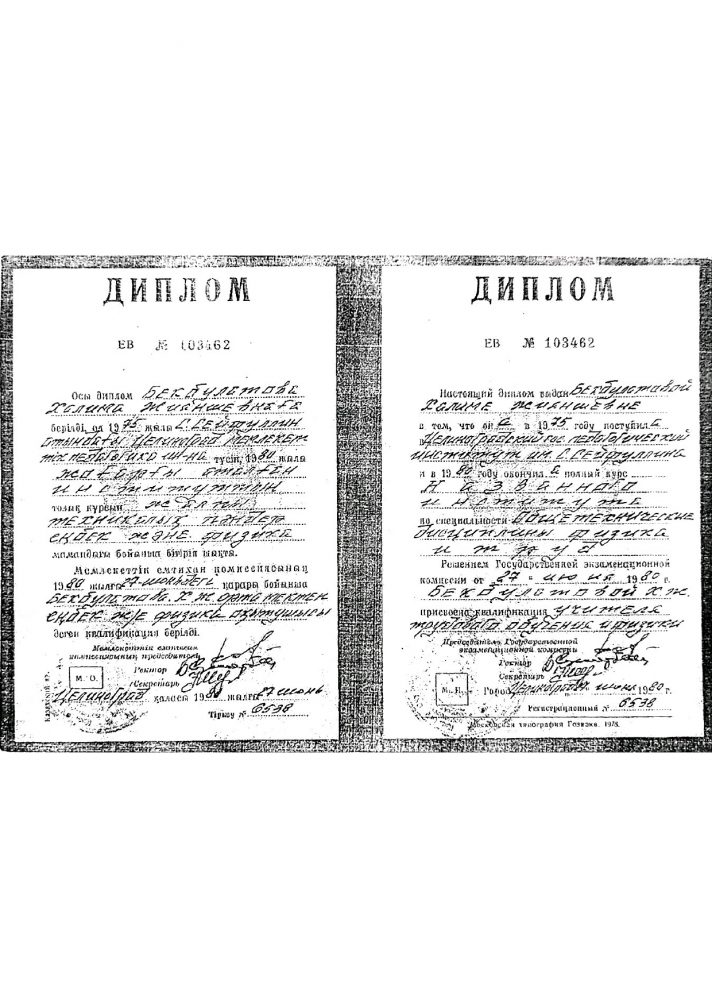 ДИПЛОМ
ЕВ № 103462
Осы диплом Бекбулатова
Халима Жиеншевнаға
берілді, ол 1975 жылы С. Сейфуллин
атындағы Целиноград мемлекет
тік педагогика ин-на түсіп, 1980 жылы
жоғарғы аталған
институттың
толық курсын жалпы
техникалық пәндер
еңбек және физика
мамандығы бойынша бітіріп шықты.
Мемлекеттік емтихан комиссиясының
1980 жылғы 27 июньдегі қарары бойынша
Бекбулатова. Х. Ж. орта мектеп
еңбек ж/е физика оқытушысы
деген квалификация берілді.
Мемлекеттік емтихан
комиссиясының председателі
Ректор
Секретарь
М. О.
Целиноград қаласы 1980 жылғы 27 июнь
Тіркеу № 6538
ДИПЛОМ
ЕВ № 103462
Настоящий диплом выдан Бекбулатовой
Халиме Жиеншевне
в том, что она в 1975 году поступила
в Целиноградский гос педагогический
институт им. С. Сейфуллина
и в 1980 году окончила полный курс
названного
института
по специальности Общетехнические
дисциплины физика
и труд
Решением Государственной экзаменационной
комиссии от 27 июня 1980 г.
Бекбулатовой Х. Ж.
присвоена квалификация учителя
трудового обучения и физики
Председатель Государственной
экзаменационной комиссии
Ректор
Секретарь
М. П.
Город Целиноград июнь 1980 г.
Регистрационный № 6538
Московская типография Гознака. 1978.